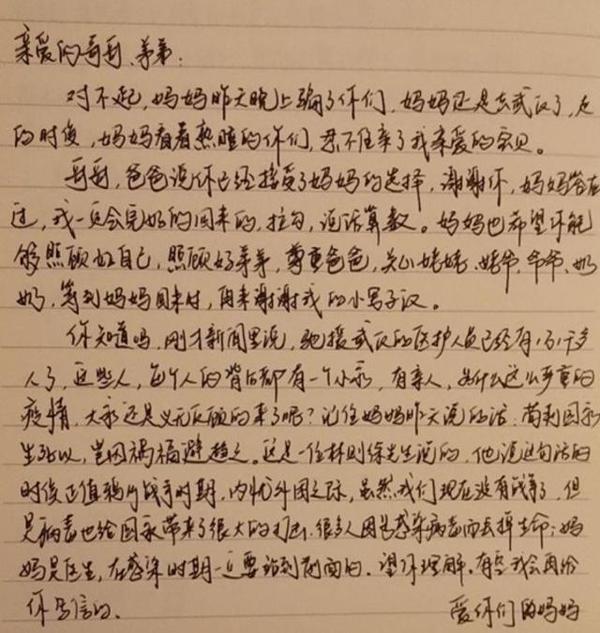 亲爱的哥哥、弟弟:
对不起,妈妈昨天晚上骗了你们,妈妈还是去武汉了,走
的时候,妈妈看着熟睡的你们,忍不住亲了我亲爱的宝贝。
哥哥,爸爸说你已经接受了妈妈的选择,谢谢你,妈妈答应
过,我一定会完好的回来的,拉勾,说话算数。妈妈也希望你能
够照顾好自己,照顾好弟弟,尊重爸爸,关心姥姥、姥爷、爷爷、奶
奶,等到妈妈回来时,再来谢谢我的小男子汉。
你知道吗,刚才新闻里说,驰援武汉的医护人员已经有1万1千多
人了,这些人,每个人的背后都有一个小家,有亲人,为什么这么严重的
疫情,大家还是义无反顾的来了呢?记住妈妈昨天说的话:苟利国家
生死以,岂因祸福避趋之。这是一位林则徐先生说的,他说这句话的
时候正值鸦片战争时期,内忧外困之际,虽然我们现在没有战争,但
是病毒也给国家带来了很大的打击,很多人因为感染病毒而丢掉生命;妈
妈是医生,在感染时期一定要站到前面的,望你理解。有空我会再给
你写信的。
爱你们的妈妈